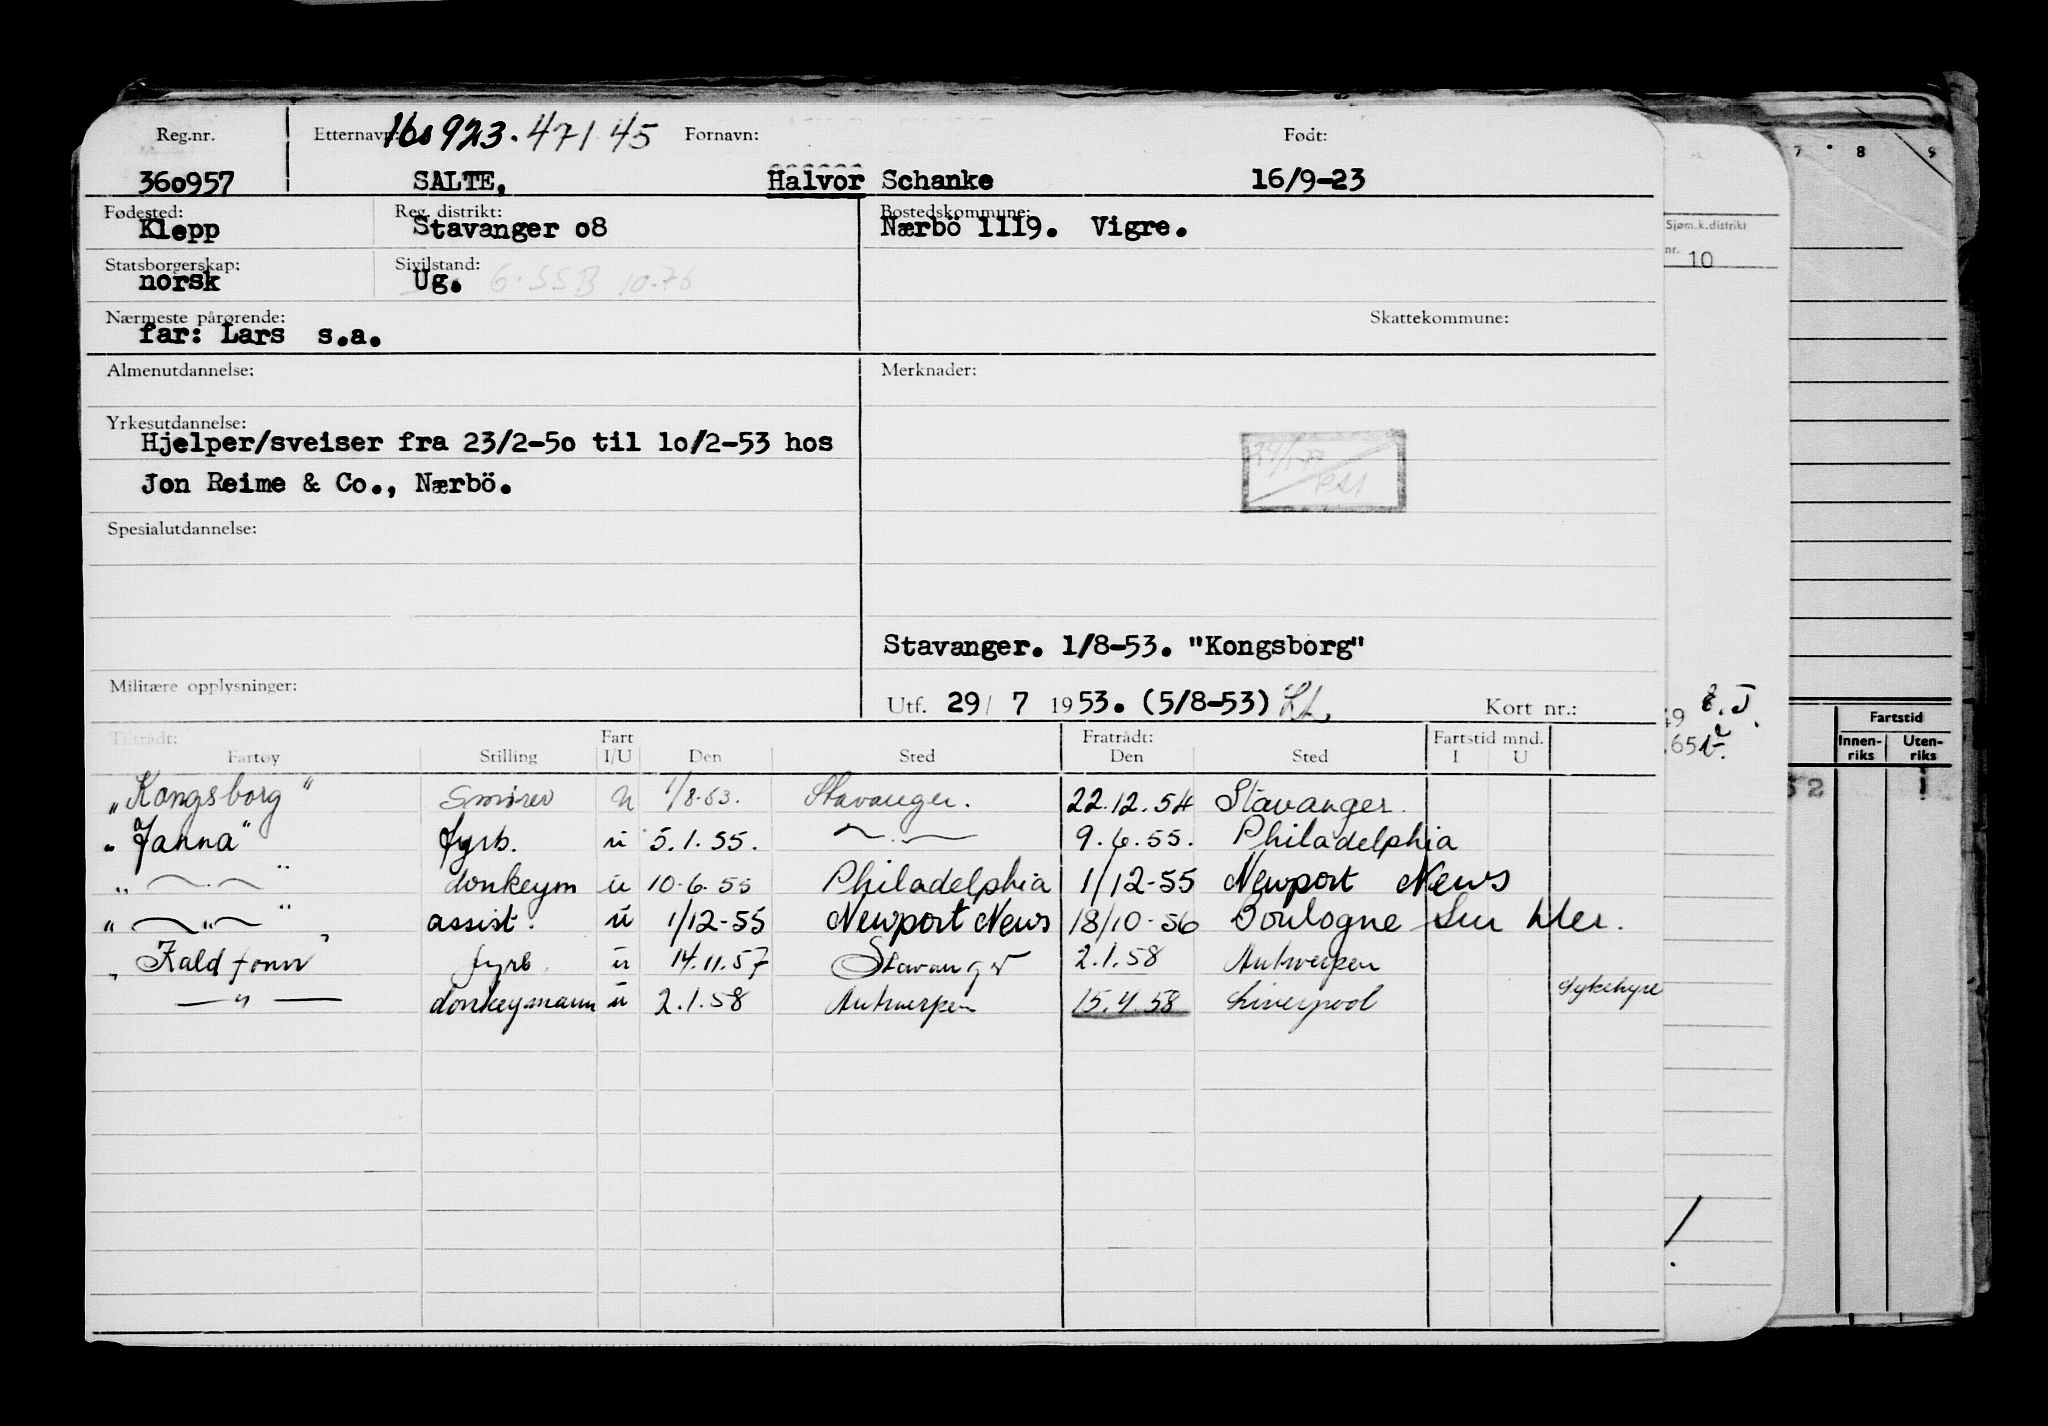 Reg.nr. Etternavn: 160923.471 45 Fornavn: Født:
360957 SALTE, Halvor Schanke 16/9-23
Fødested: Reg. distrikt: Bostedskommune:
Klepp Stavanger o8 Nærbö 1119. Vigre.
Statsborgerskap: Sivilstand:
norsk Ug. 6.SSB 10-76
Nærmeste pårørende: Skattekommune:
far: Lars s.a.
Almenutdannelse: Merknader:
Yrkesutdannelse:
Hjelper/sveiser fra 23/2-5o til 1o/2-53 hos
Jon Reime & Co., Nærbö.
Spesialutdannelse:
Stavanger. 1/8-53. "Kongsborg"
Militære opplysninger:
Utf. 29/ 7 1953. (5/8-53) Kort nr.:
Tiltrådt: Fart Fratrådt: Fartstid mnd.
Fartøy Stilling I/U Den Sted Den Sted I U
"Kongsborg" Smører u 1/8.53. Stavanger. 22.12.54 Stavanger.
"Janna" fyrb. u 5.1.55. — " — 9.6.55. Philadelphia
" — " — " donkeym u 10-6.55 Philadelphia 1/12-55 Newport News
" — " — " assist. u 1/12-55 Newport News 18/10-56 Boulogne Sur Mer.
"Kaldfonn" fyrb. u 14.11.57 Stavanger 2.1.58 Antwerpen
— " — donkeymann u 2.1.58 Antwerpen 15.4.58 Liverpool Sykehyre
Sjøm.k.distrikt
nr. 10
7 8 9
Fartstid
Innen-riks Uten-riks
52